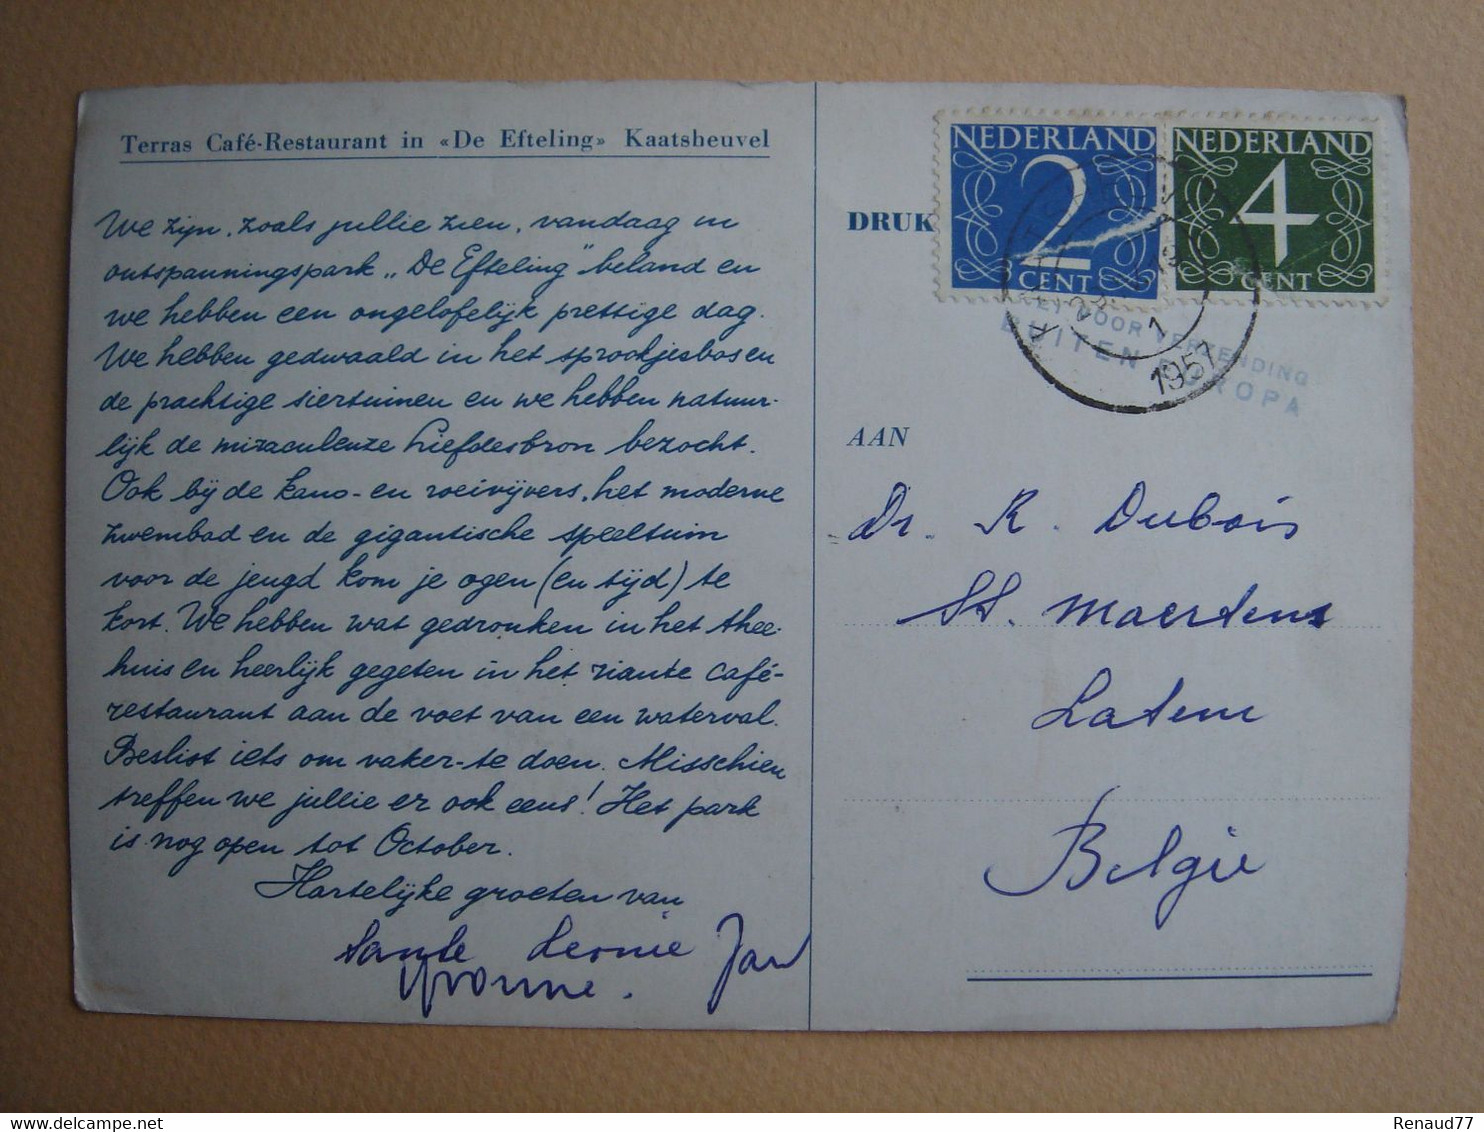 Terras Café-Restaurant in «De Efteling» Kaatsheuvel
We zijn, zoals jullie zien, vandaag in
ontspanningspark „De Efteling" beland en
we hebben een ongelofelijk prettige dag.
We hebben gedwaald in het sprookjesbos en
de prachtige siertuinen en we hebben natuur-
lijk de miraculeuze Liefdesbron bezocht.
Ook bij de kano- en roeivijvers, het moderne
zwembad en de gigantische speeltuin
voor de jeugd kom je ogen (en tijd) te
kort. We hebben wat gedronken in het thee-
huis en heerlijk gegeten in het riante café-
restaurant aan de voet van een waterval.
Beslist iets om vaker te doen. Misschien
treffen we jullie er ook eens! Het park
is nog open tot October.
Hartelijke groeten van
tante Leonie Jan
Yvonne.
DRUK
NEDERLAND
2
CENT
NEDERLAND
4
CENT
1
1957
VOOR VERZENDING
BUITEN EUROPA
AAN
Dr. R. Dubois
St. Maertens
Latem
België
Renaud77